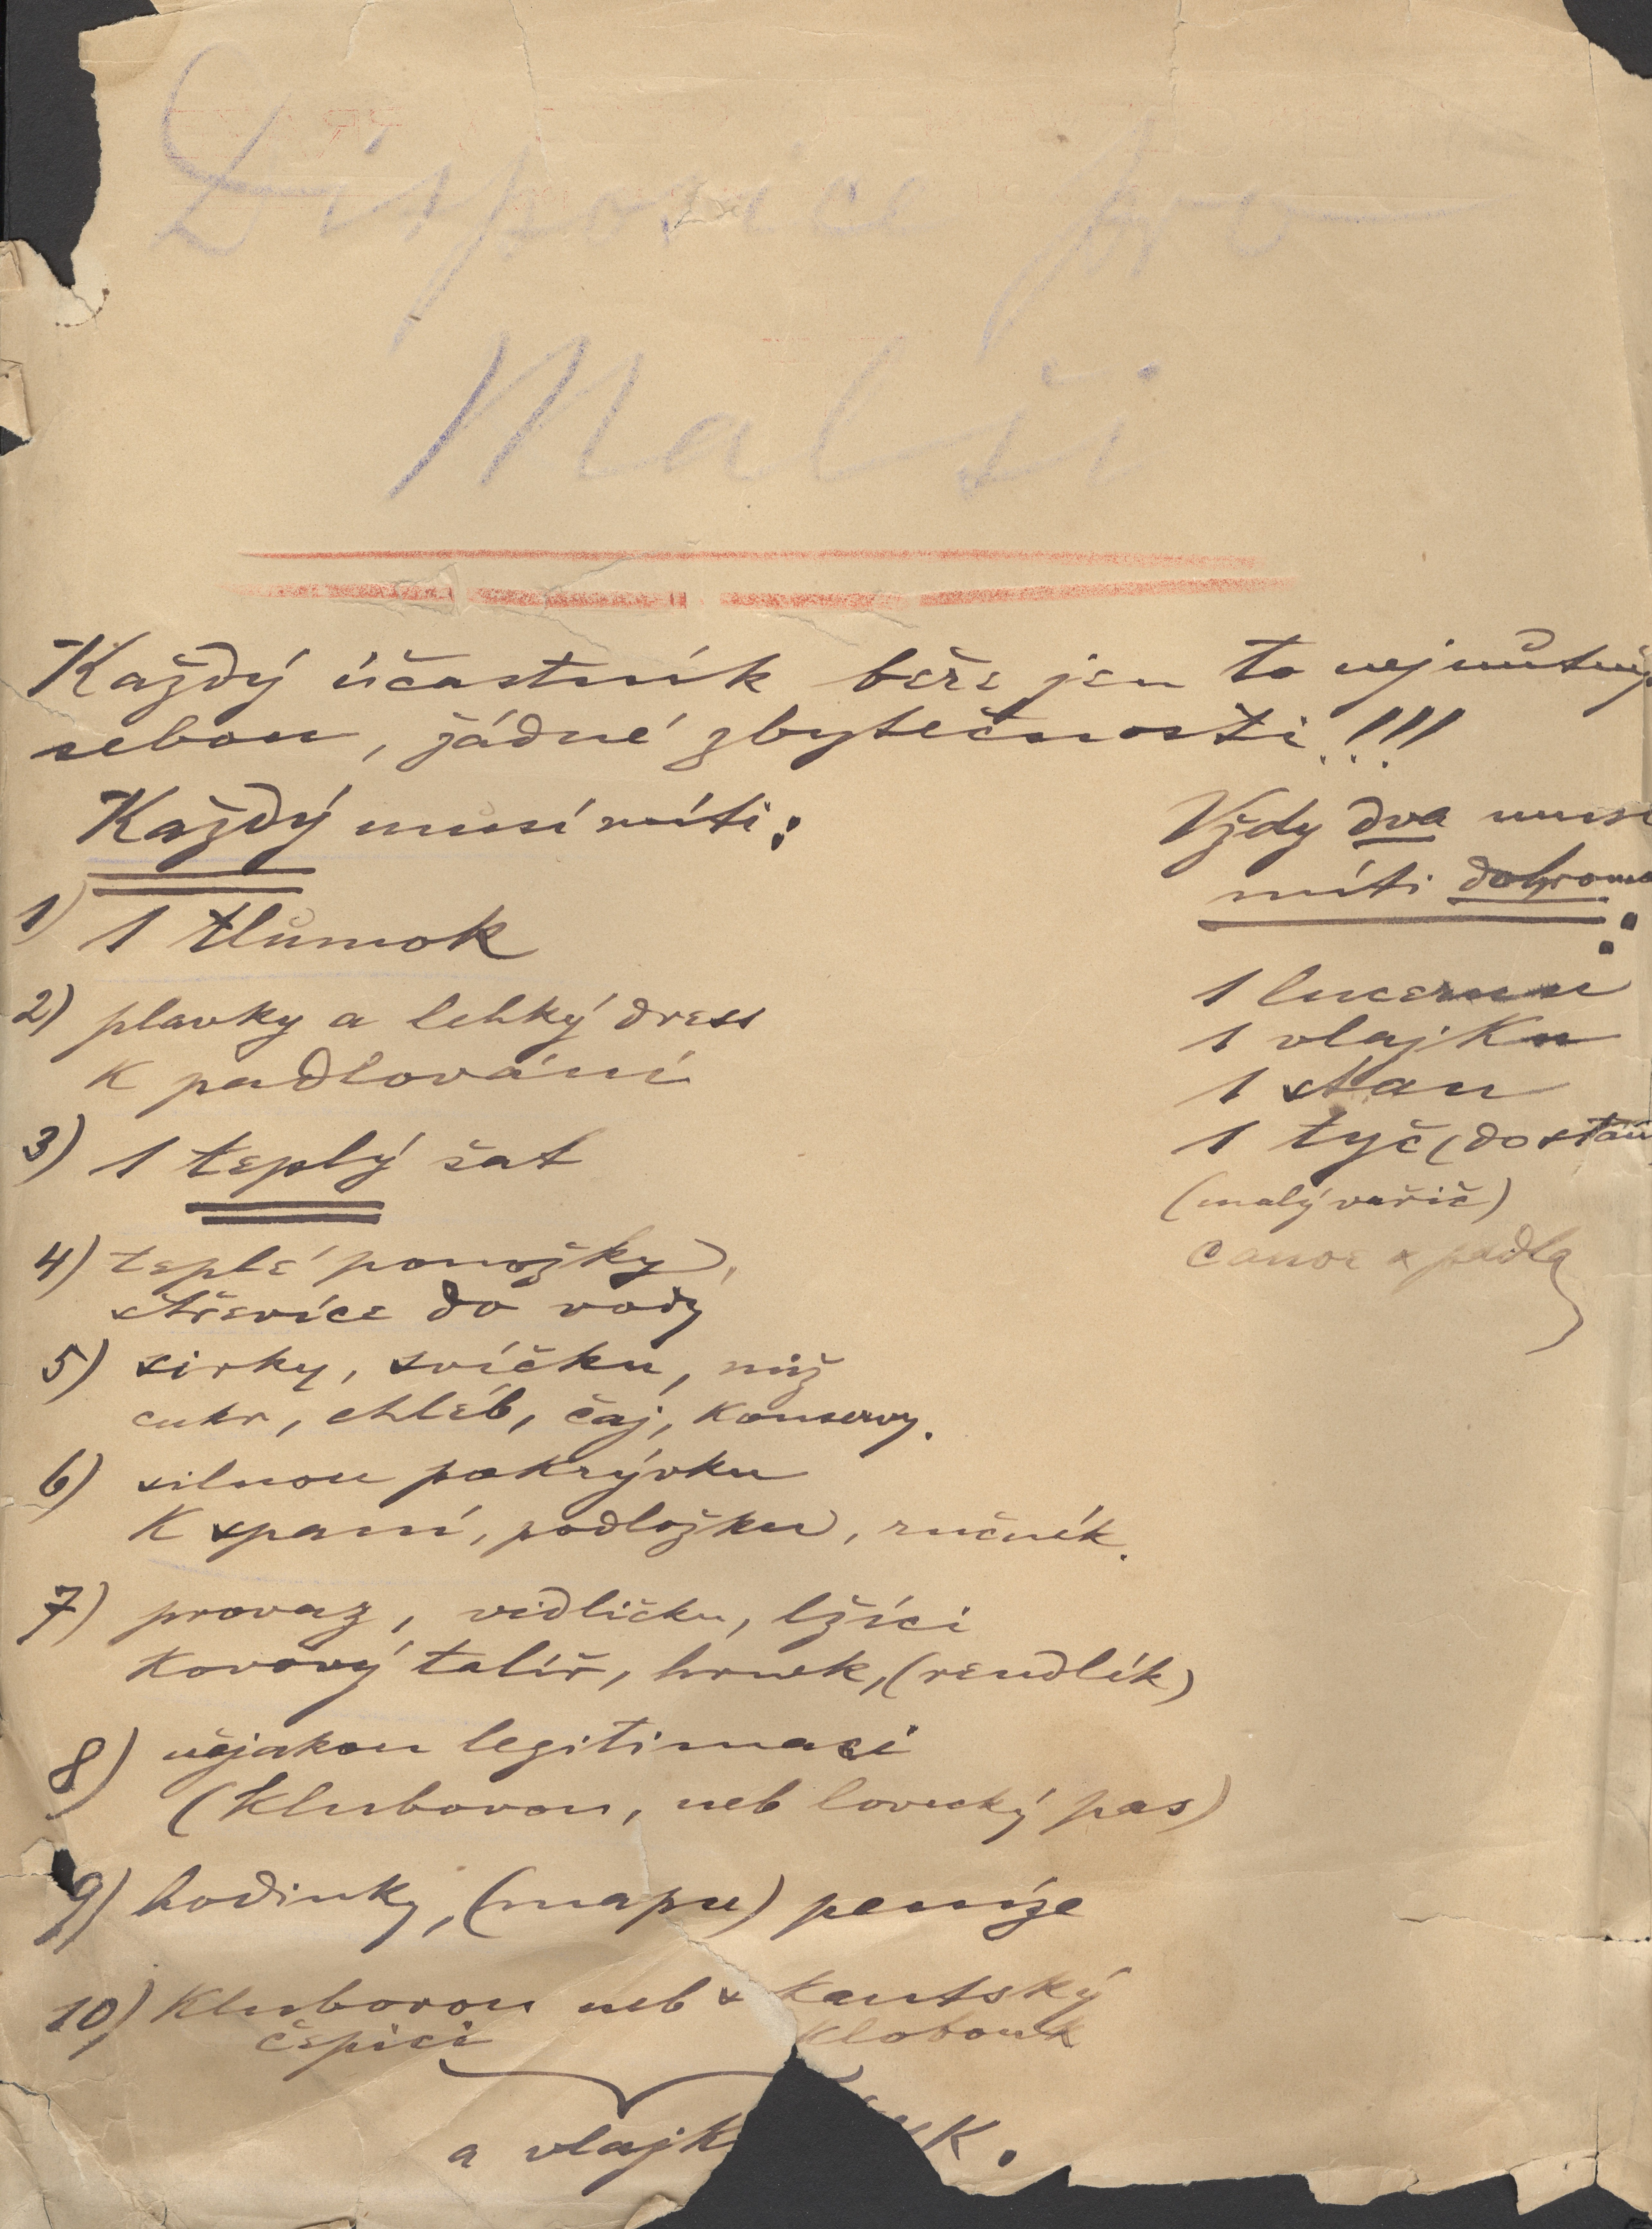 Disposice pro
Malši
Každý účastník béře jen to nejnutněj.
sebou, žádné zbytečnosti!!!
Každý musí míti:
1) 1 tlumok
2) plavky a lehký dress
k padlování
3) 1 teplý šat
4) teplé ponožky,
střevíce do vody
5) sirky, svíčku, nůž
cukr, chléb, čaj, konservy.
6) silnou pokrývku
k spaní, podložku, ručník.
7) provaz, vidličku, lžíci
kovový talíř, hrnek, (rendlík)
8) nějakou legitimaci
(klubovou, neb lovecký pas)
9) hodinky, (mapu) peníze
10) Klubovou neb skautský
čepici klobouk
a vlajk
Vždy dva musí
míti dohroma
:
1 lucernu
1 vlajku
1 stan
1 tyč (do stanu
(malý vařič)
Canoe a padla